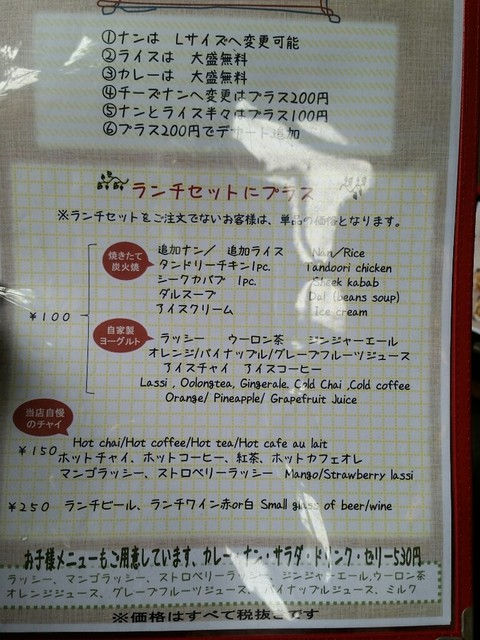 ①ナンは Lサイズへ変更可能
②ライスは 大盛無料
③カレーは 大盛無料
④チーズナンへ変更はプラス200円
⑤ナンとライス半々はプラス100円
⑥プラス200円でデザート追加
ランチセットにプラス
※ランチセットをご注文でないお客様は、単品の価格となります。
焼きたて
炭火焼
追加ナン／ 追加ライス Nan/Rice
タンドリーチキン1pc. Tandoori chicken
シークカバブ 1pc. Sheek kabab
ダルスープ Dal (beans soup)
アイスクリーム Ice cream
¥100
自家製
ヨーグルト
ラッシー ウーロン茶 ジンジャーエール
オレンジ/パイナップル/グレープフルーツジュース
アイスチャイ アイスコーヒー
Lassi , Oolongtea, Gingerale. Cold Chai ,Cold coffee
Orange/ Pineapple/ Grapefruit Juice
当店自慢
のチャイ
Hot chai/Hot coffee/Hot tea/Hot cafe au lait
¥150
ホットチャイ、ホットコーヒー、紅茶、ホットカフェオレ
マンゴラッシー、ストロベリーラッシー Mango/Strawberry lassi
¥250 ランチビール、ランチワイン赤or白 Small glass of beer/wine
お子様メニューもご用意しています、カレー・ナン・サラダ・ドリンク・ゼリー530円
ラッシー、マンゴラッシー、ストロベリーラッシー、ジンジャーエール,ウーロン茶
オレンジジュース、グレープフルーツジュース、パイナップルジュース、ミルク
※価格はすべて税抜きです